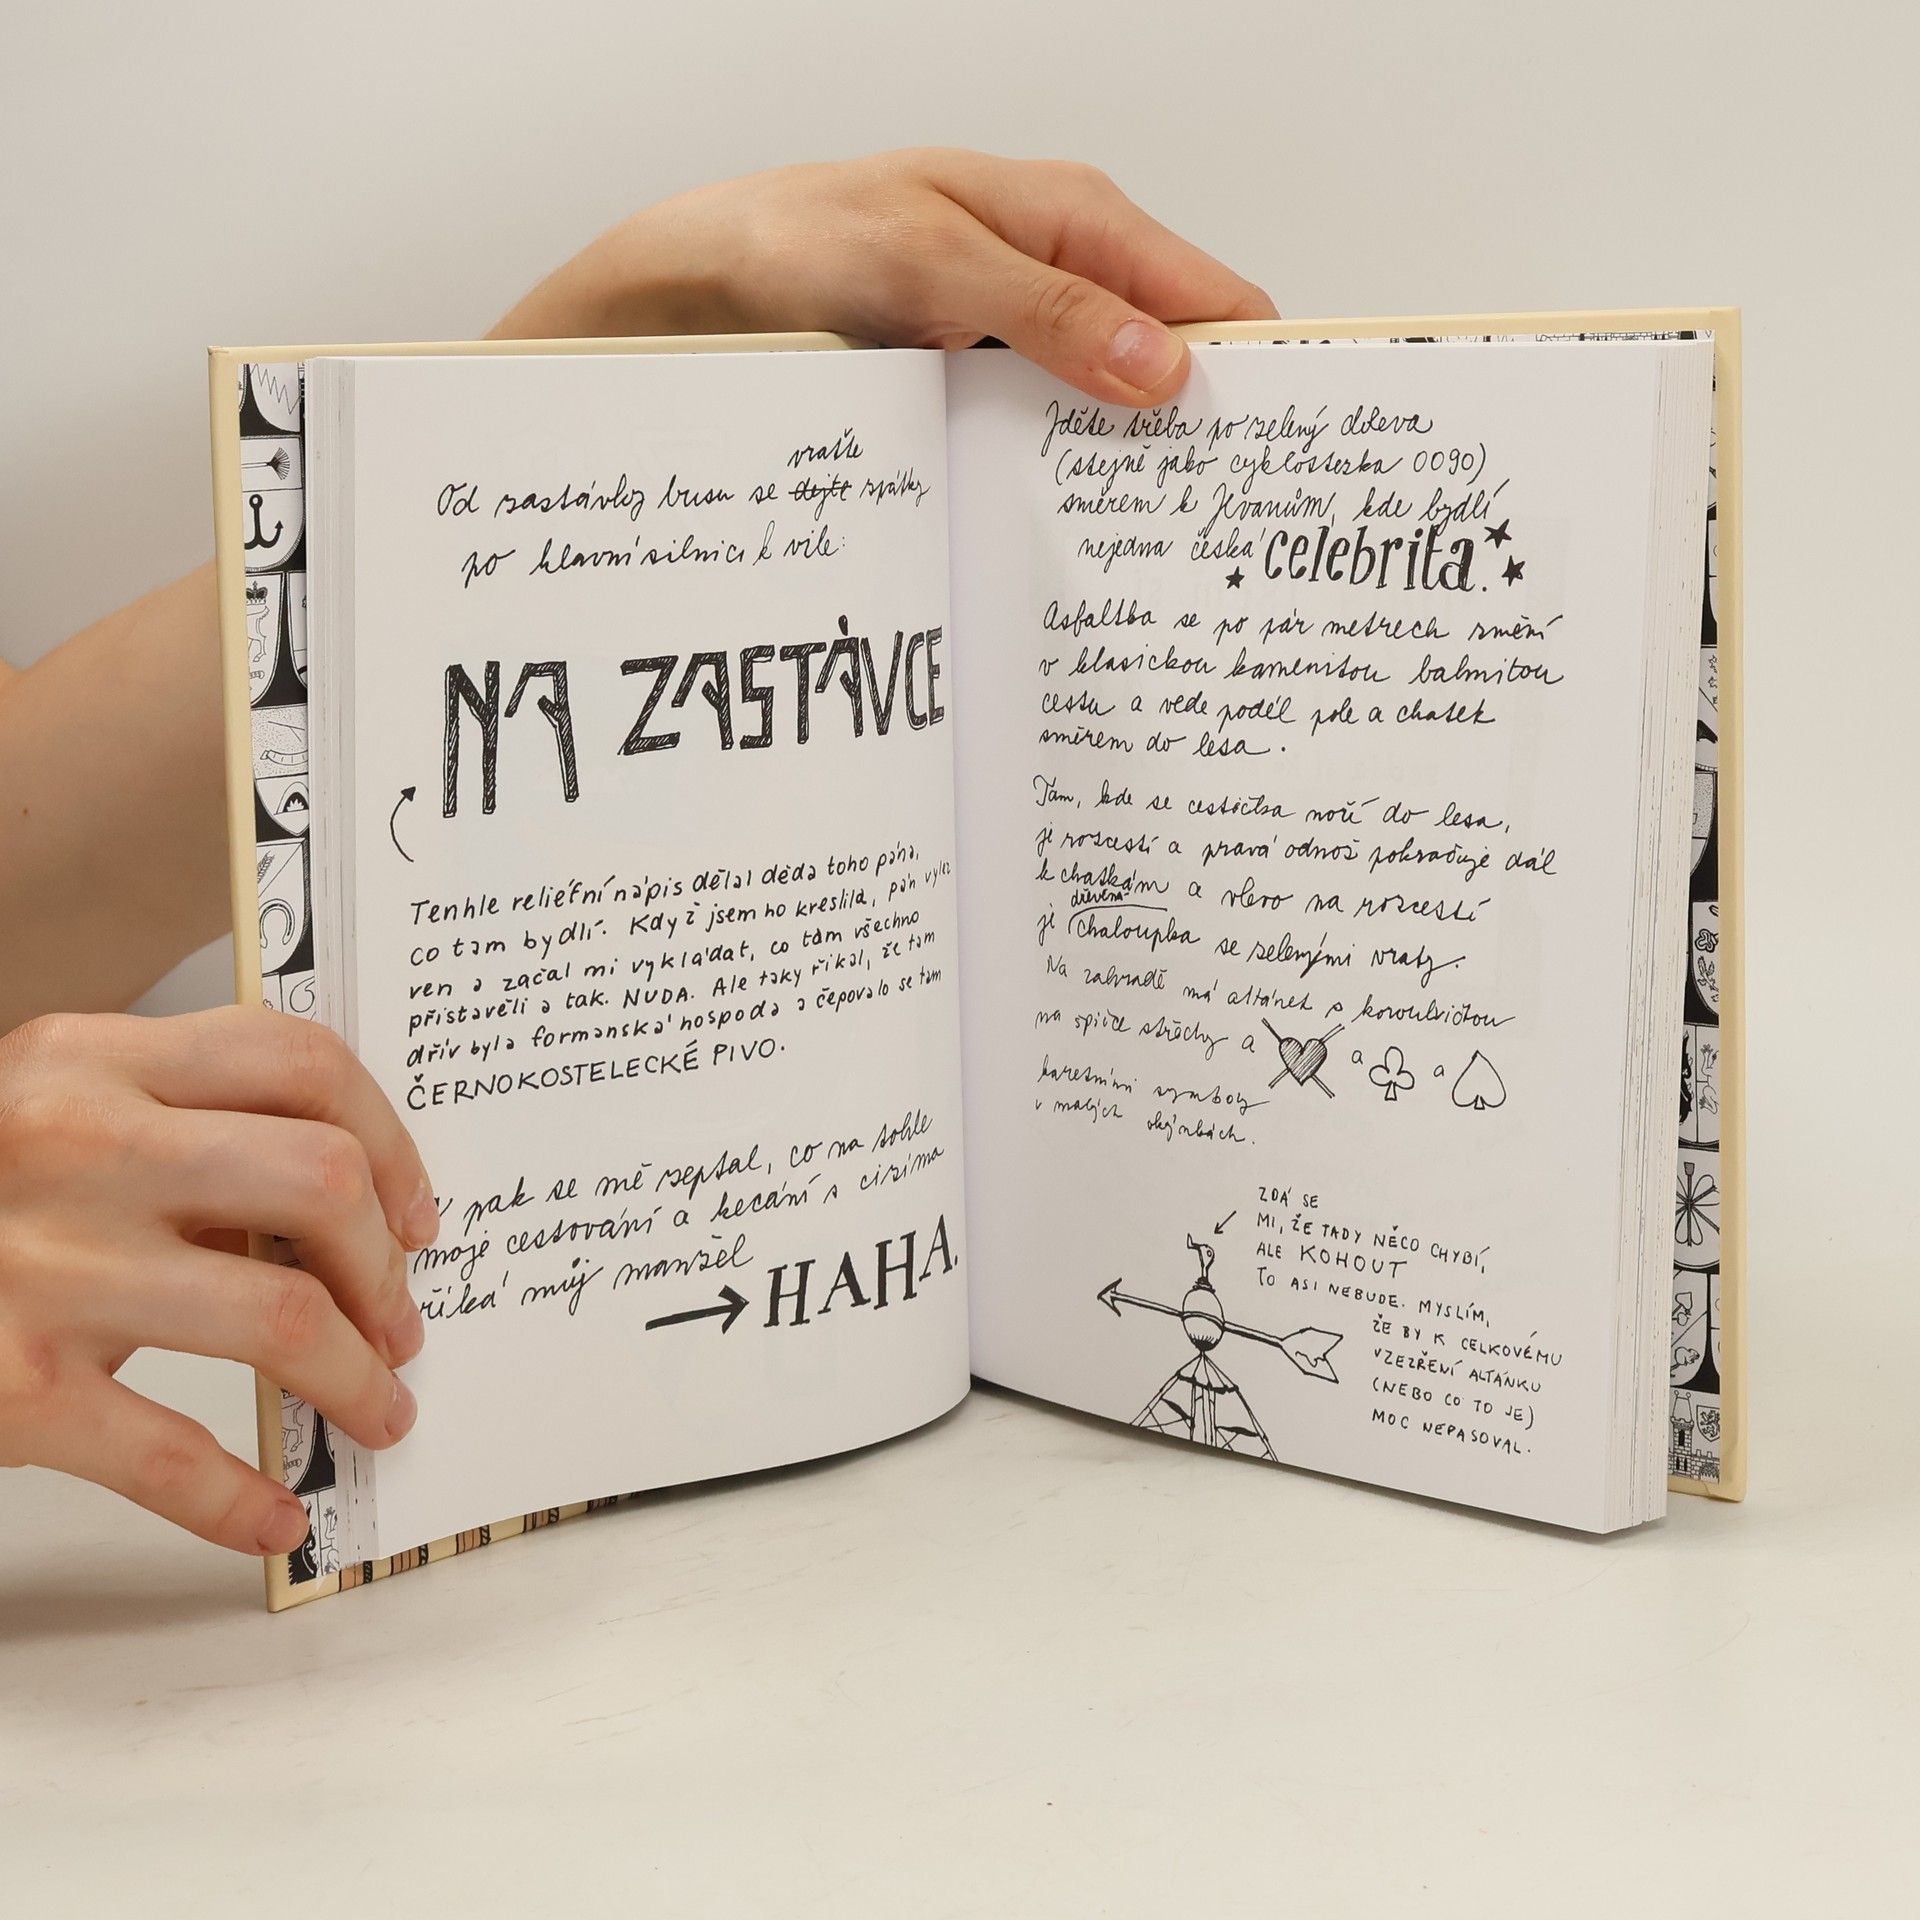 vraťte
Od zastávky busu se dejte zpátky
po hlavní silnici k vile:
NA ZASTÁVCE
Tenhle reliéfní nápis dělal děda toho pána,
co tam bydlí. Když jsem ho kreslila, pán vylez
ven a začal mi vykládat, co tam všechno
přistavěli a tak. NUDA. Ale taky říkal, že tam
dřív byla formanská hospoda a čepovalo se tam
ČERNOKOSTELECKÉ PIVO.
pak se mě zeptal, co na tohle
moje cestování a kecání s cizíma
říká můj manžel
HAHA.
Jděte třeba po zelený doleva
(stejně jako cyklostezka 0090)
směrem k Jevanům, kde bydlí
nejedna česká celebrita.
Asfaltka se po pár metrech změní
v klasickou kamenitou balnitou
cestu a vede podél pole a chatek
směrem do lesa.
Tam, kde se cestička noří do lesa,
je rozcestí a pravá odnož pokračuje dál
k chatkám a vlevo na rozcestí
dřevěná
je chaloupka se zelenými vraty.
Na zahradě má altánek s korouhvičkou
na špičce střechy a a a
karetními symboly
v malých okýnkách.
ZDÁ SE
MI, ŽE TADY NĚCO CHYBÍ,
ALE KOHOUT
TO ASI NEBUDE. MYSLÍM,
ŽE BY K CELKOVÉMU
VZEZŘENÍ ALTÁNKU
(NEBO CO TO JE)
MOC NEPASOVAL.